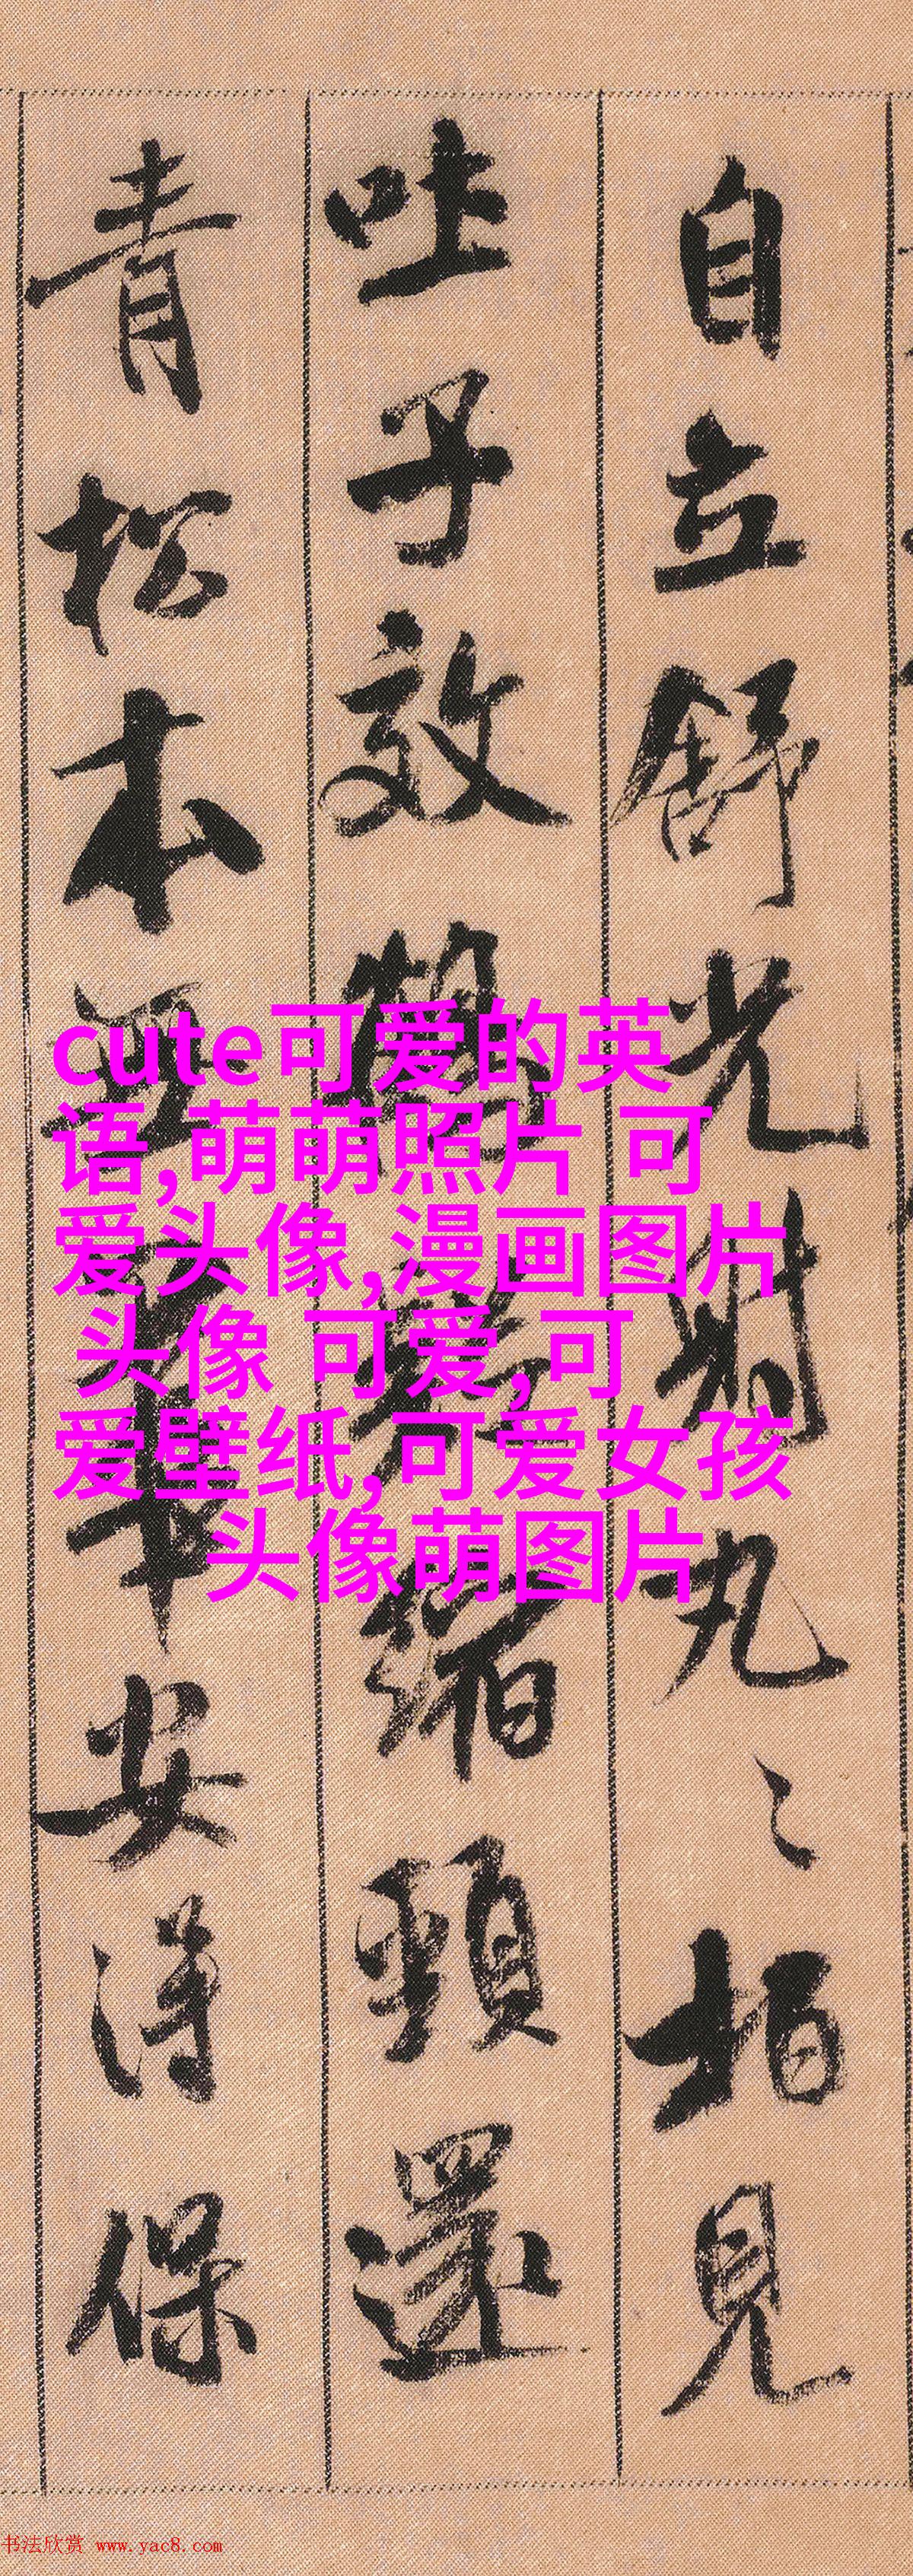 自立舒光射丸〻柏見
吐子效鶴疑縮頸還
青松本無華安得保
cute可爱的英
语,萌萌照片 可
爱头像,漫画图片
头像 可爱,可
爱壁纸,可爱女孩
头像萌图片
书法欣赏 www.yac8.com